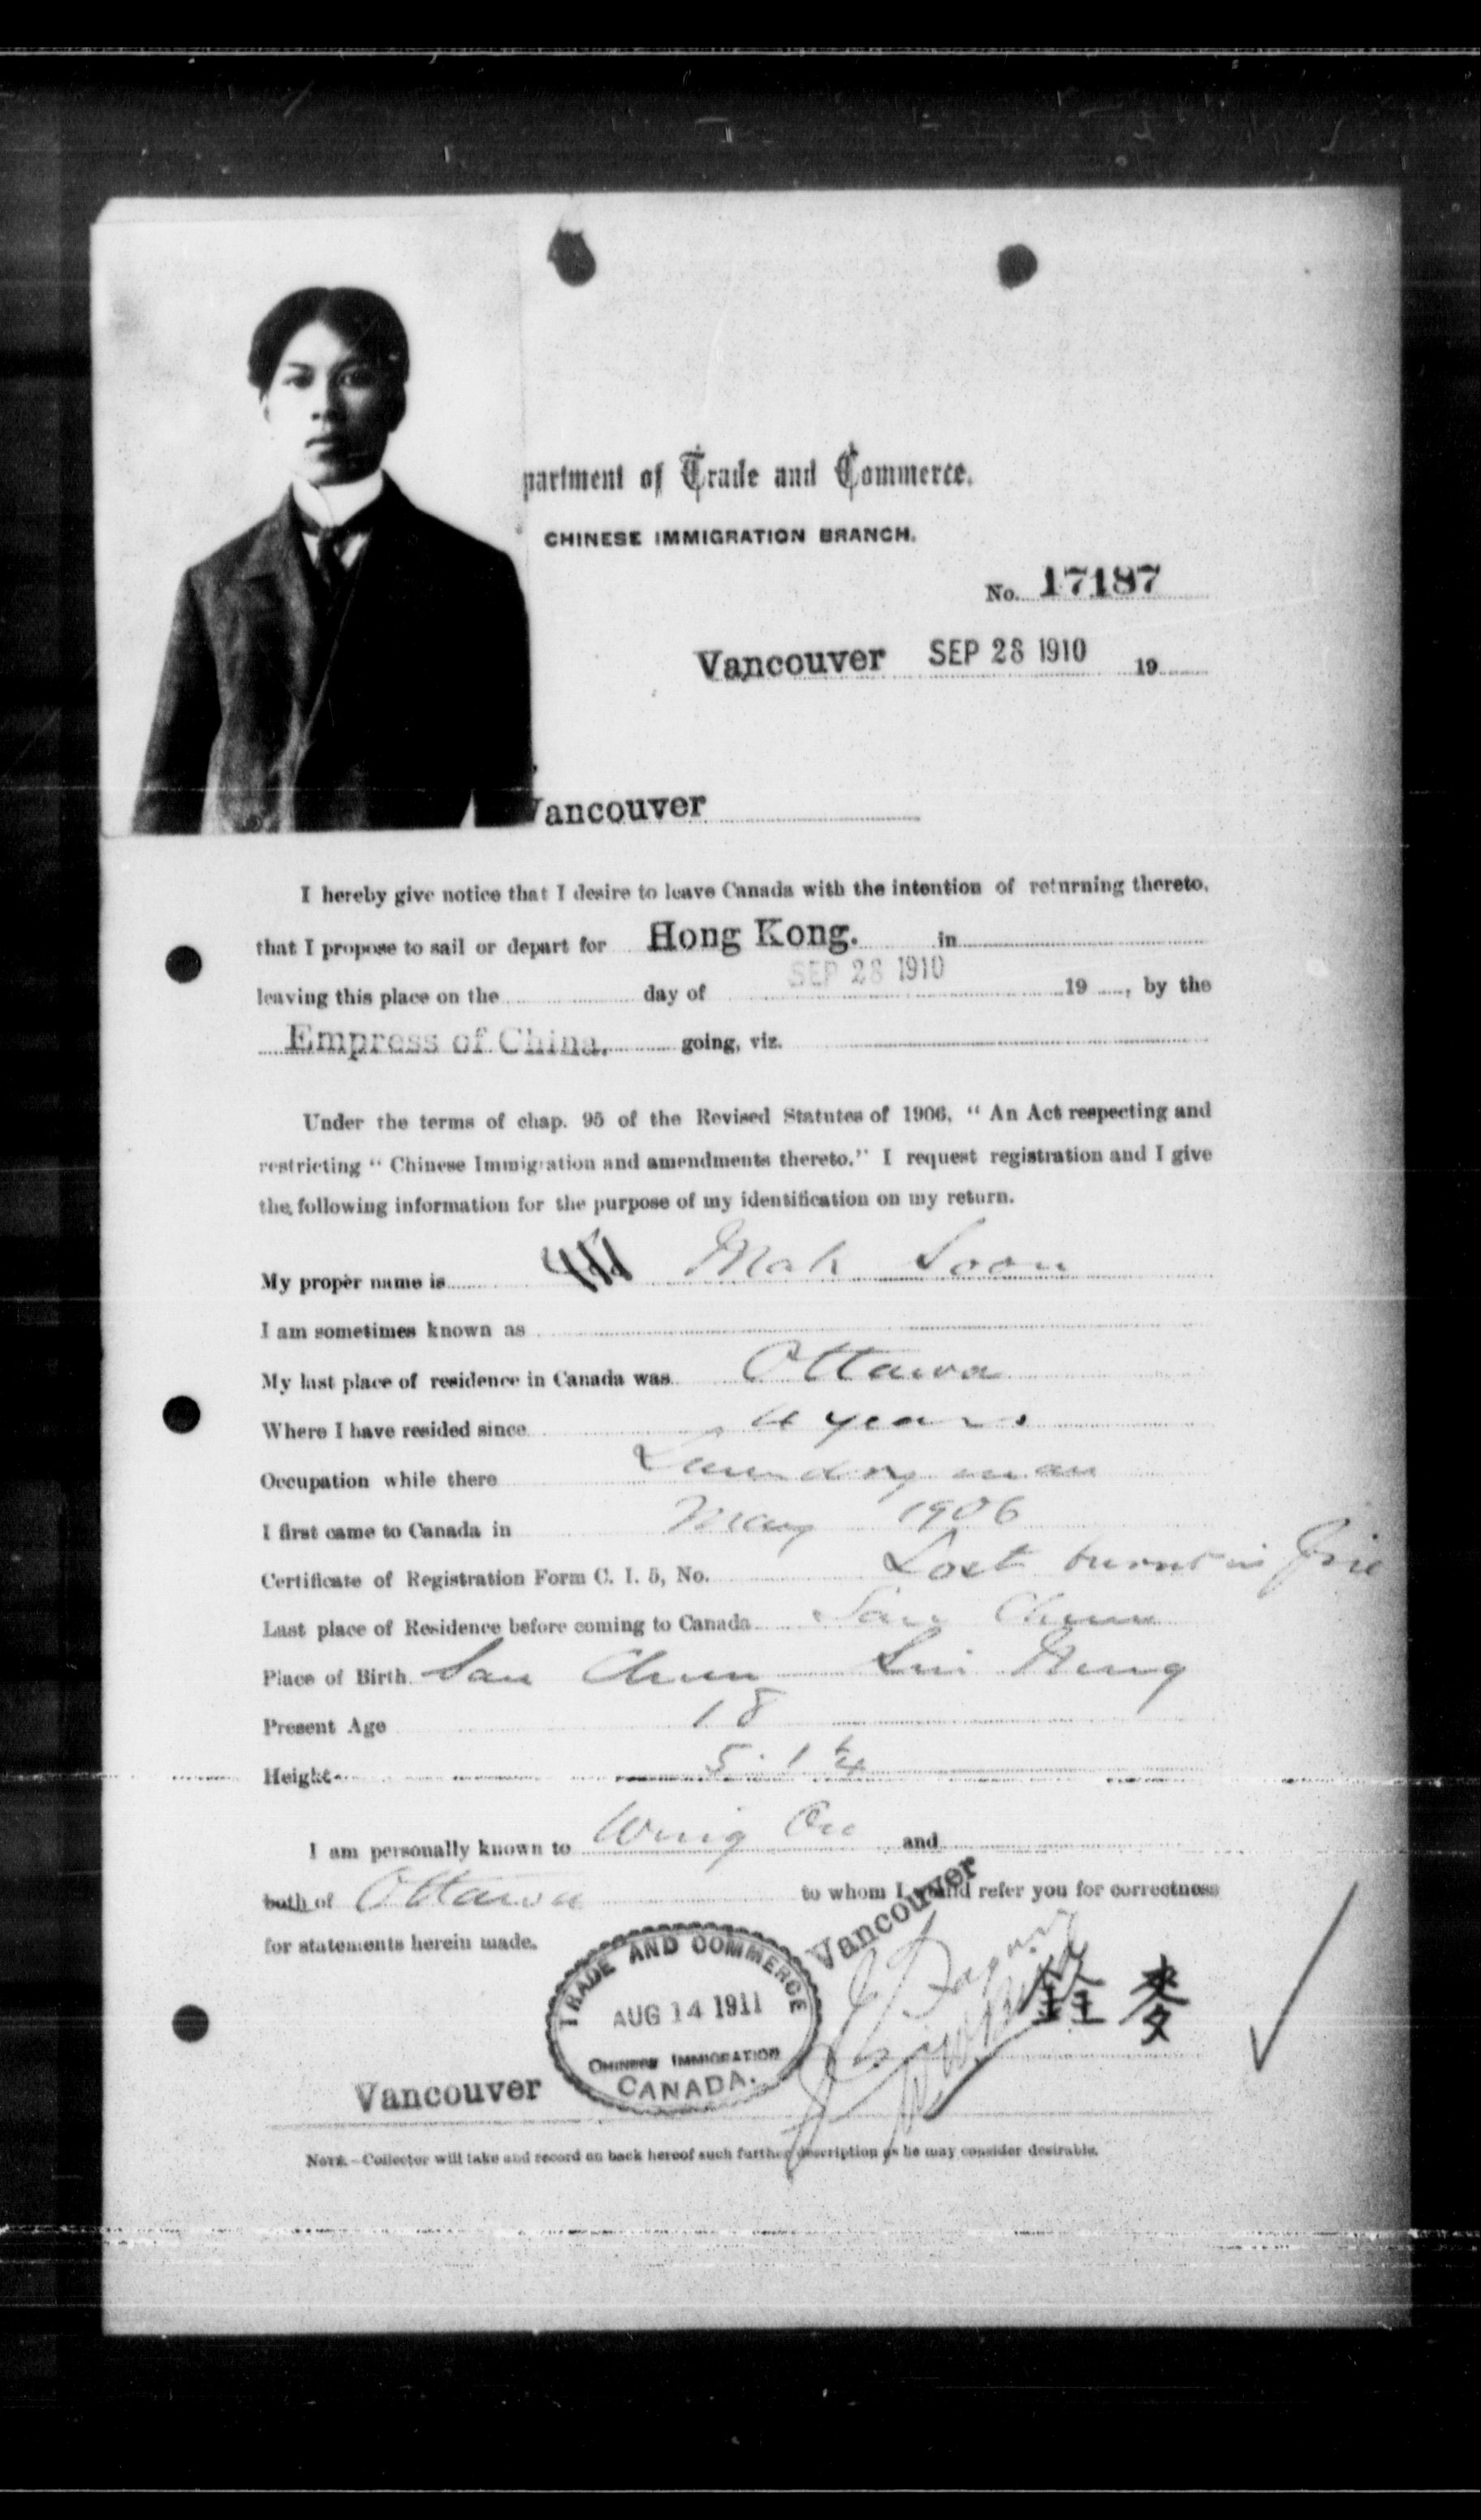 partment of Trade and Commerce.
CHINESE IMMIGRATION BRANCH.
No. 17187
Vancouver SEP 28 1910 19
Vancouver
I hereby give notice that I desire to leave Canada with the intention of returning thereto,
that I propose to sail or depart for Hong Kong. in
leaving this place on the day of SEP 28 1910 19 , by the
Empress of China. going, viz.
Under the terms of chap. 95 of the Revised Statutes of 1906, “ An Act respecting and
restricting “ Chinese Immigration and amendments thereto.” I request registration and I give
the following information for the purpose of my identification on my return.
My proper name is Mah Soon
I am sometimes known as
My last place of residence in Canada was Ottawa
Where I have resided since 4 years
Occupation while there Laundry man
I first came to Canada in May 1906
Certificate of Registration Form C. I. 5, No. Lost burnt in fire
Last place of Residence before coming to Canada San Chun
Place of Birth San Chun Sui
Present Age 18
Height 5.1 1/4
I am personally known to Wing On and
both of Ottawa to whom I could refer you for correctness
for statements herein made.
Vancouver
TRADE AND COMMERCE
AUG 14 1911
CHINESE IMMIGRATION
CANADA.
麥銓
Vancouver
NOTE.—Collector will take and record on back hereof such further description as he may consider desirable.